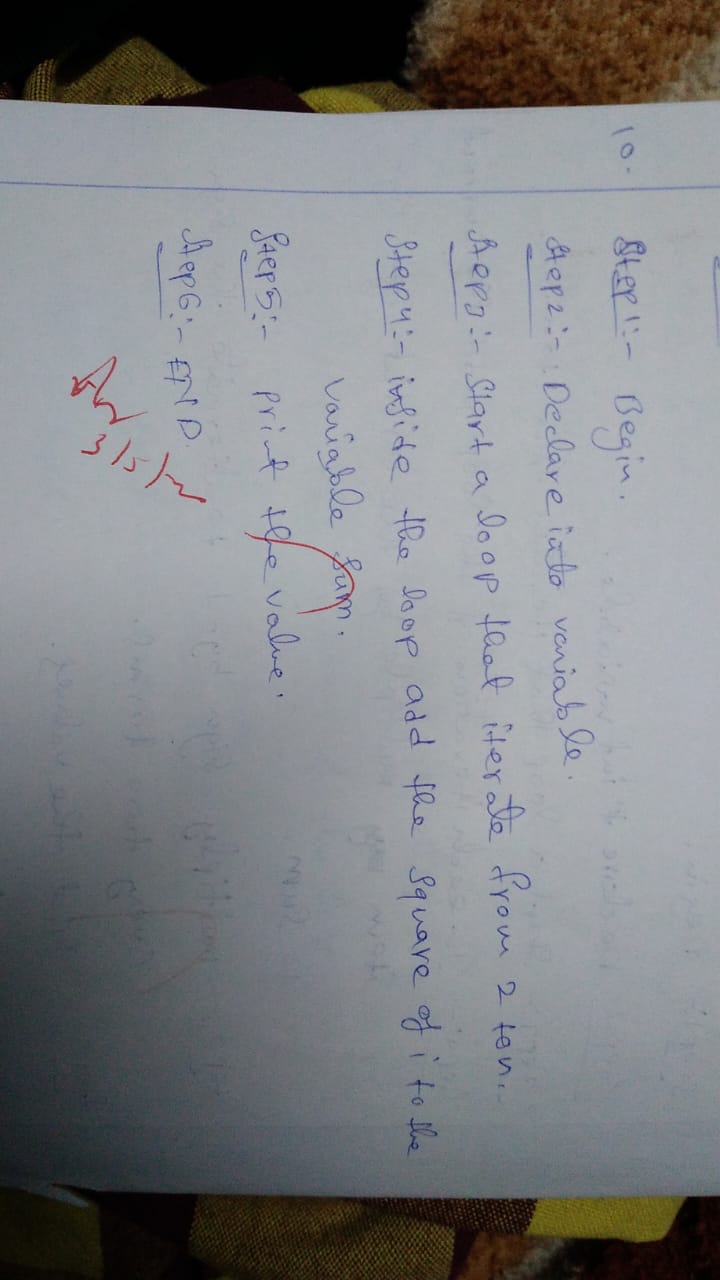 10. Step1:- Begin.
Step2:- Declare into variable.
Step3:- Start a loop that iterate from 2 to n.
Step4:- inside the loop add the square of i to the
variable sum.
Step5:- print the value.
Step6:- END.
3/5/